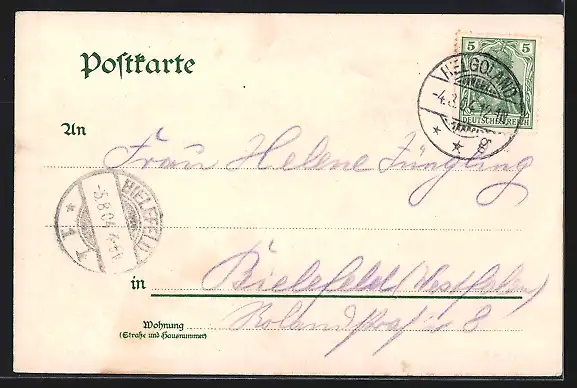 Postkarte
5 5
DEUTSCHES REICH
HELGOLAND
-4.8.04
An
Frau Helene Jüngling
BIELEFELD
-5.8.04
* 1
in
Bielefeld (Westfalen)
Wohnung
(Straße und Hausnummer)
Rolandstraße 8